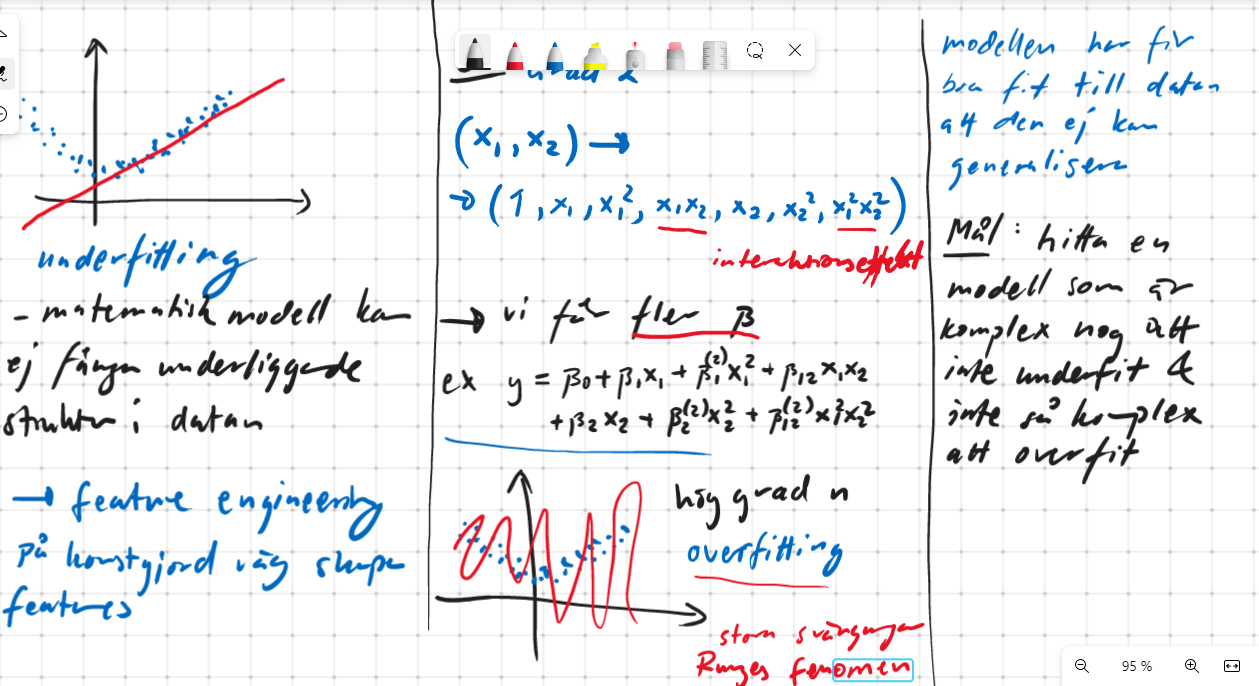 underfitting
- matematisk modell kan
ej fånga underliggande
struktur i datan
→ feature engineering
på konstgjord väg skapa
features
grad 2
(x₁, x₂) →
→ (1, x₁, x₁², x₁x₂, x₂, x₂², x₁²x₂²)
interaktionseffekt
→ vi får fler β
ex y = β₀ + β₁x₁ + β₁⁽²⁾x₁² + β₁₂x₁x₂
+ β₂x₂ + β₂⁽²⁾x₂² + β₁₂⁽²⁾x₁²x₂²
hög grad n
overfitting
stora svängningar
Runges fenomen
modellen har för
bra fit till datan
att den ej kan
generalisera
Mål: hitta en
modell som är
komplex nog att
inte underfit &
inte så komplex
att overfit
95 %